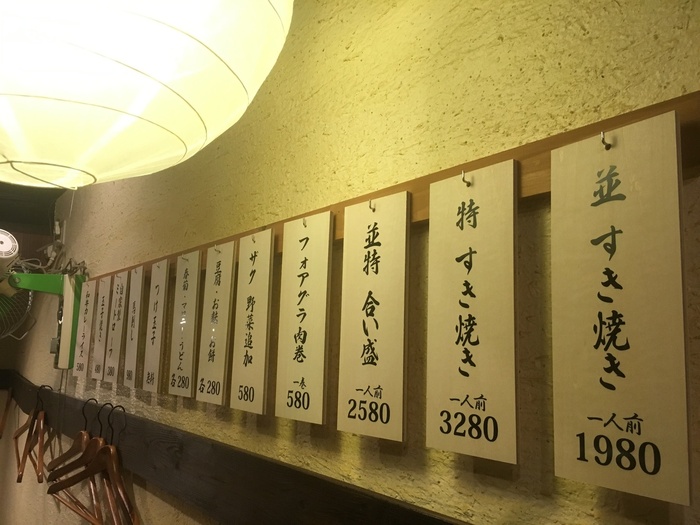 並 すき焼き
一人前
1980
特 すき焼き
一人前
3280
並特 合い盛
一人前
2580
フォアグラ肉巻
一巻
580
ザク 野菜追加
580
豆腐・お麩・お餅
各280
春菊・マロニー・うどん
各280
つけ玉子